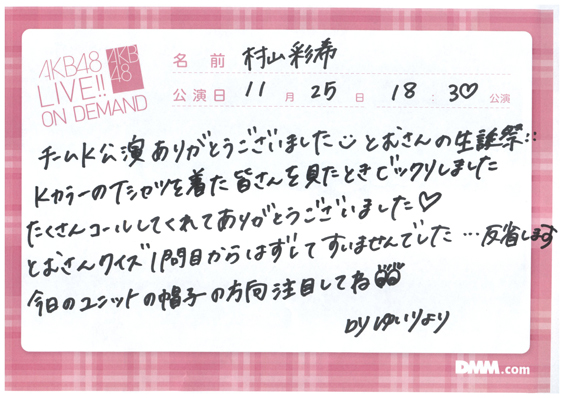 AKB48
LIVE!!
ON DEMAND
AKB
48
名前 村山彩希
公演日 11月25日 18:30公演
チームK公演ありがとうございました とむさんの生誕祭::
KカラーのTシャツを着た皆さんを見たときビックリしました
たくさんコールしてくれてありがとうございました♡
とむさんクイズ1問目からはずしてすいませんでした…反省します
今日のユニットの帽子の方向注目してね
by ゆいりより
DMM.com